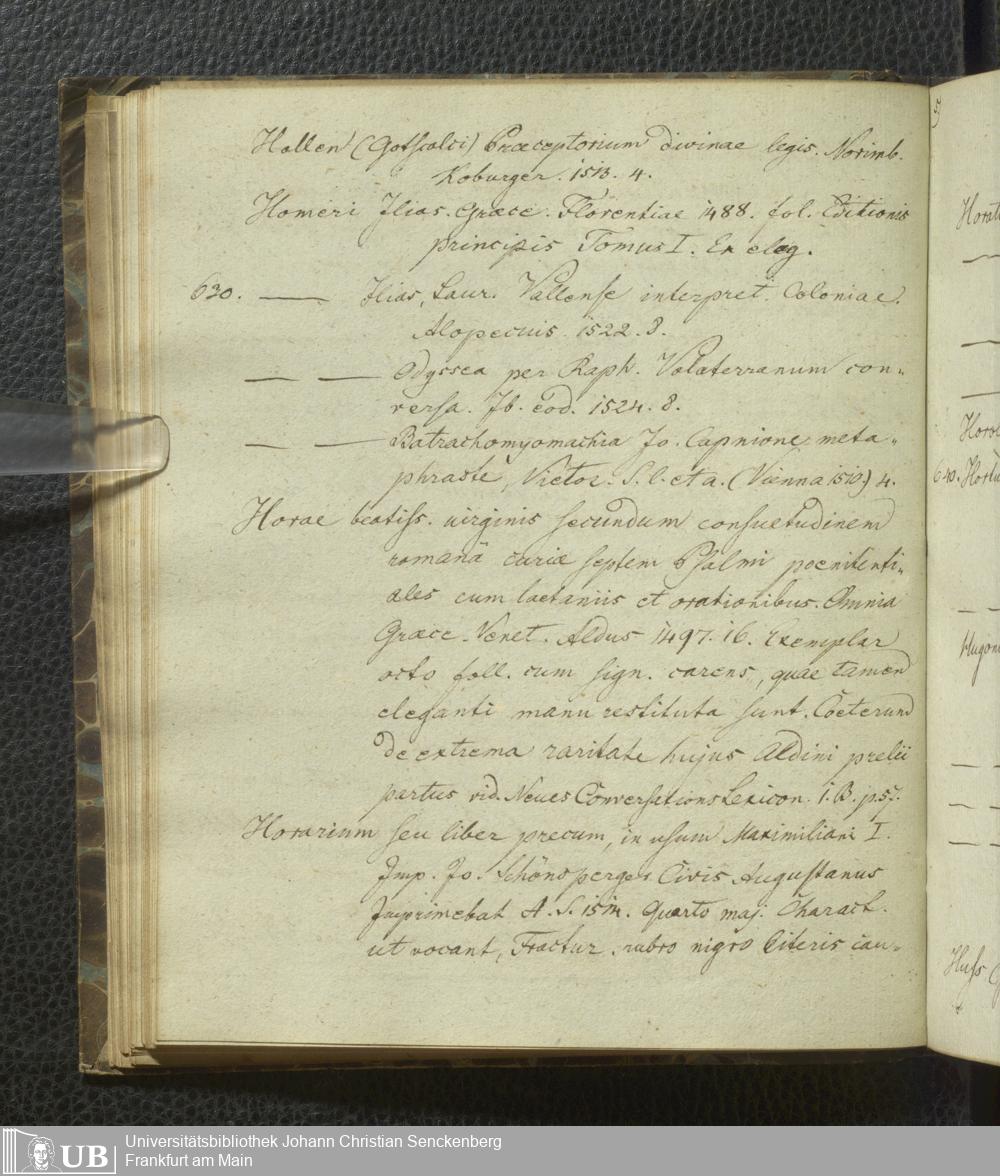 Hollen (Gotscalci) Præceptorium divinae legis. Norimb.
Koburger. 1513. 4.
Homeri Ilias. Græce. Florentiae 1488. fol. Editionis
principis Tomus I. Ex eleg.
630. — Ilias, Laur. Vallense interpret. Coloniae.
Alopecuis. 1522. 8.
— — Odyssea per Raph. Volaterranum con-
versa. Ib. eod. 1524. 8.
— — Batrachomyomachia Jo. Capnione meta-
phraste, Victor. S. l. et a. (Vienna 1510.) 4.
Horae beatiss. virginis secundum consuetudinem
romanā curiæ septem Psalmi poenitenti-
ales cum laetaniis et orationibus. Omnia
Græce. Venet. Aldus 1497. 16. Exemplar
octo foll. cum sign. carens, quae tamen
eleganti manu restituta sunt. Coeterum
de extrema raritate hujus Aldini prelii
partus vid. Neues Conversations Lexicon. 1. B. p. 57.
Horarium seu liber precum, in usum Maximiliani I.
Imp. Jo. Schönsperger Civis Augustanus
Imprimebat A. S. 1514. Quarto maj. Charact.
ut vocant, Fractur. rubro nigro Literis cau-
Horat
640. Hortu
Hugon
Huss
UB
Universitätsbibliothek Johann Christian Senckenberg
Frankfurt am Main